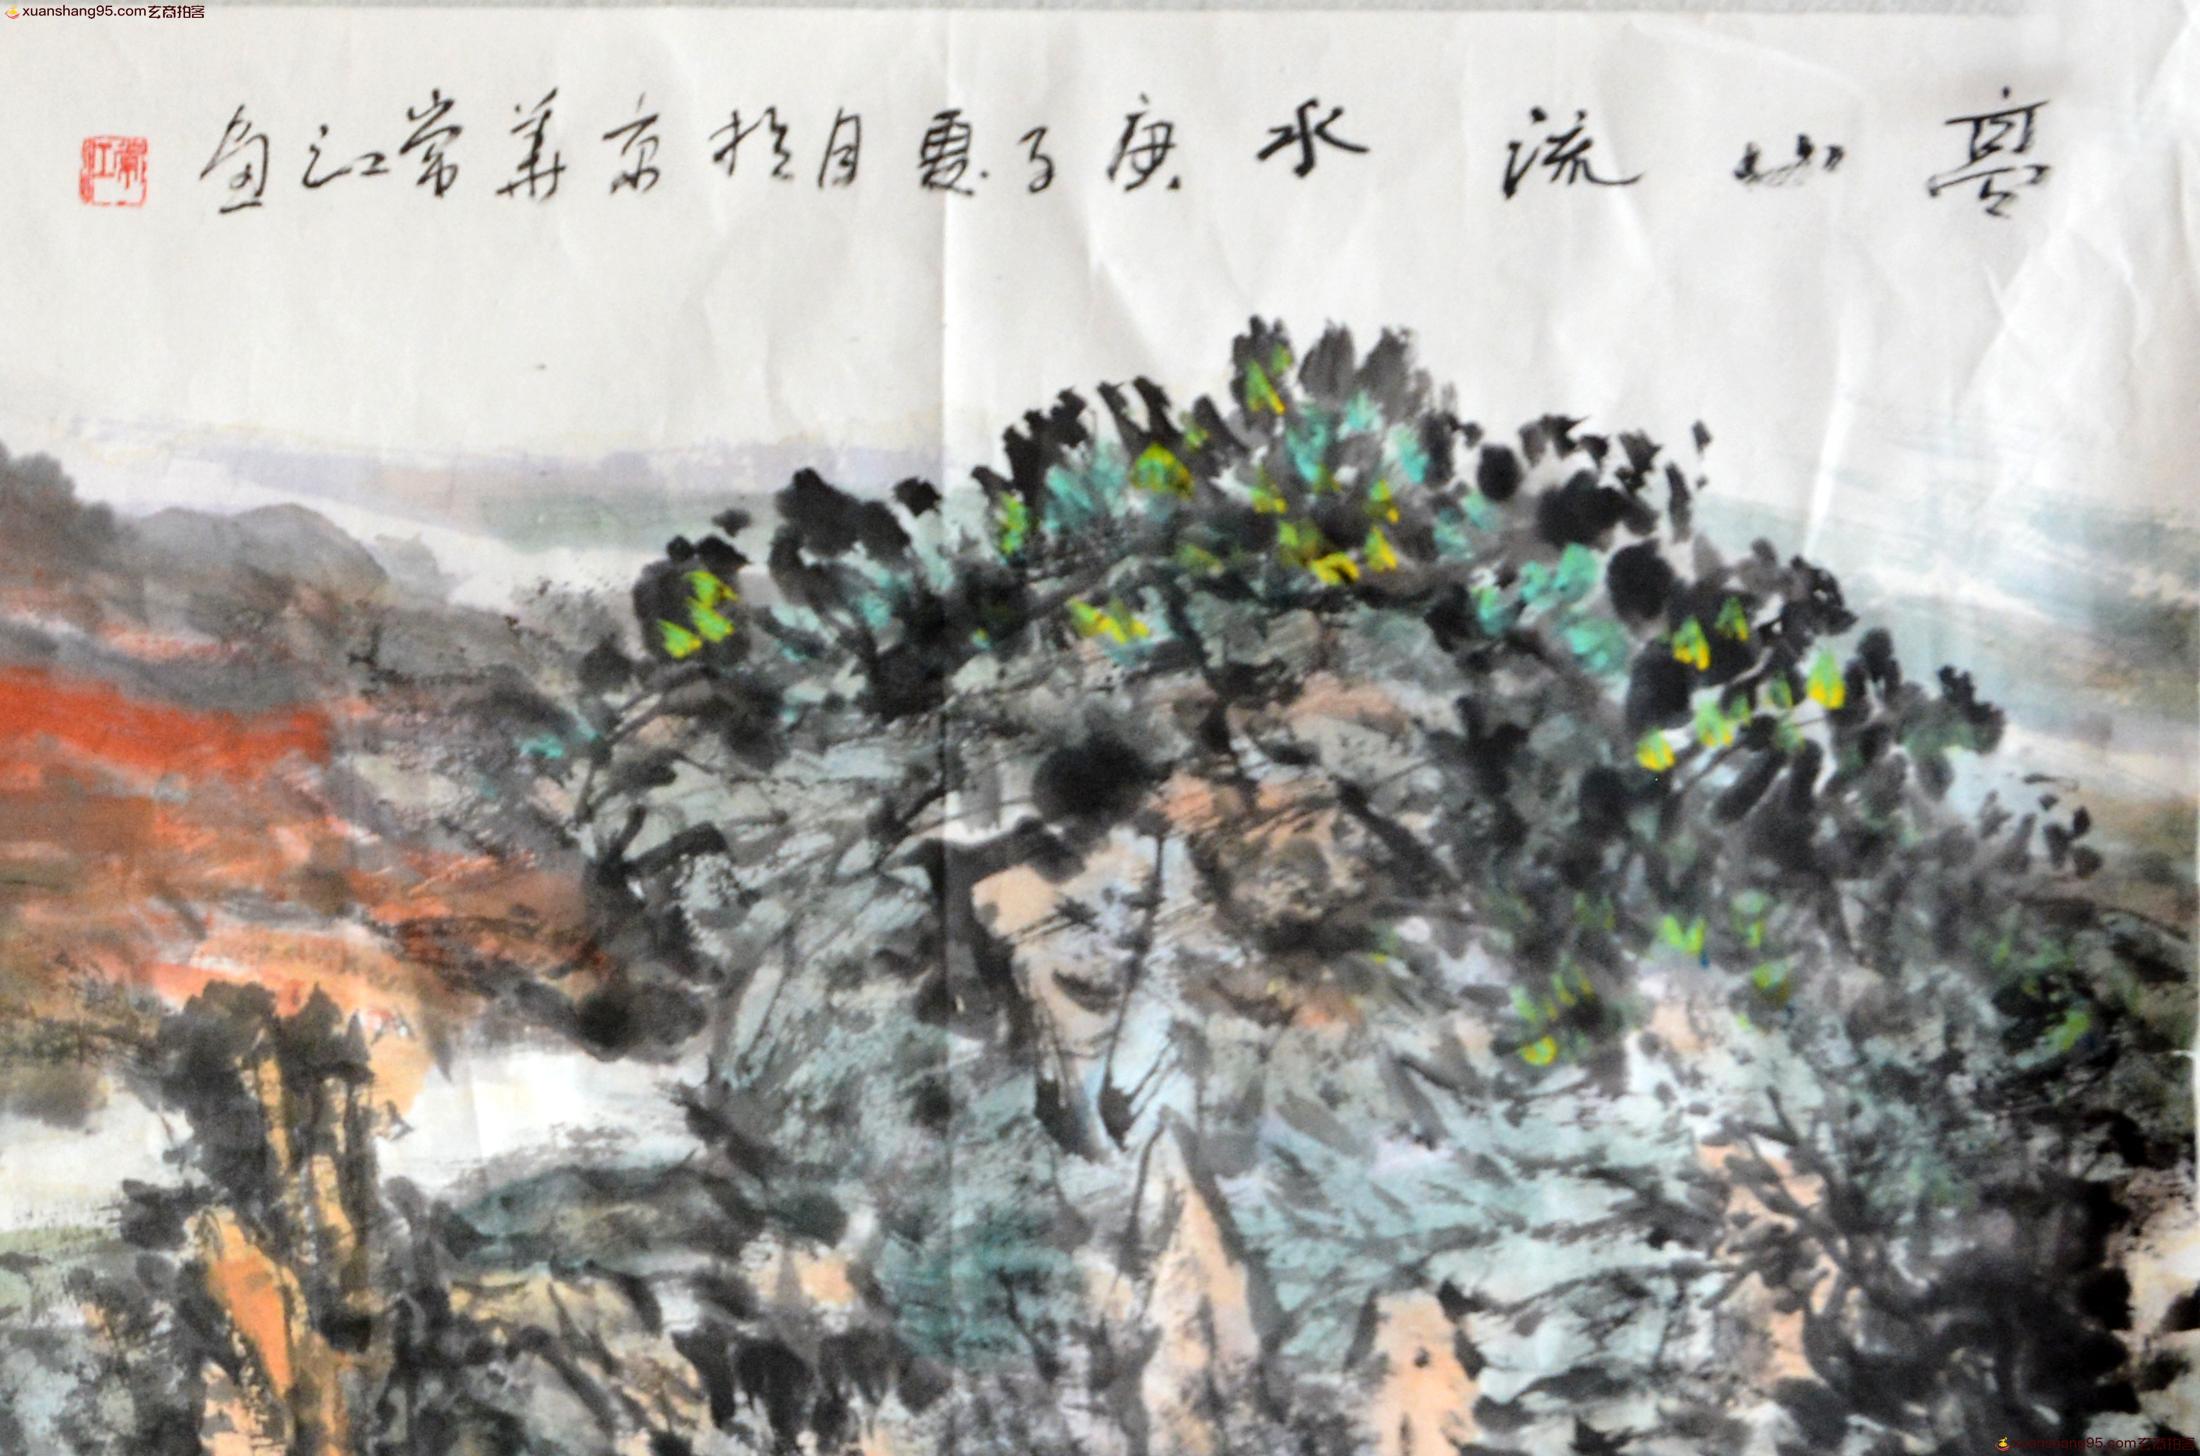 xuanshang95.com玄商拍客
高山流水 庚子夏月於京華常江畫
常江
xuanshang95.com玄商拍客